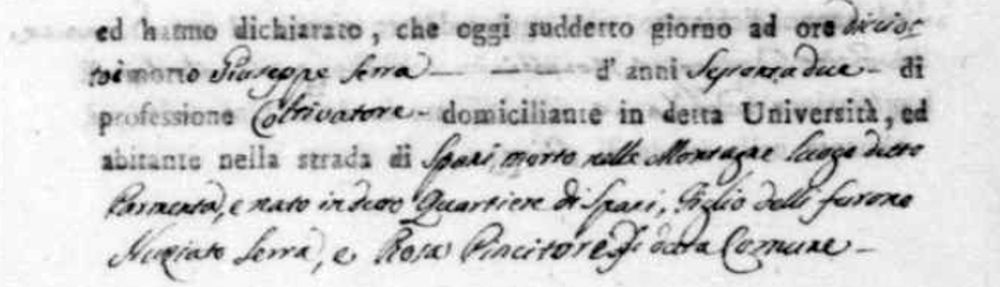 ed hanno dichiarato, che oggi suddetto giorno ad ore diciot
to è morto Giuseppe Serra — — — d'anni Septantadue - di
professione Coltivatore - domiciliante in detta Università, ed
abitante nella strada di Spani, morto nelle Montagne luogo detto
e nato in detto Quartiere di Spani, Figlio delli furono
Nunziato Serra, e Rosa Pincitore di detta Comune -